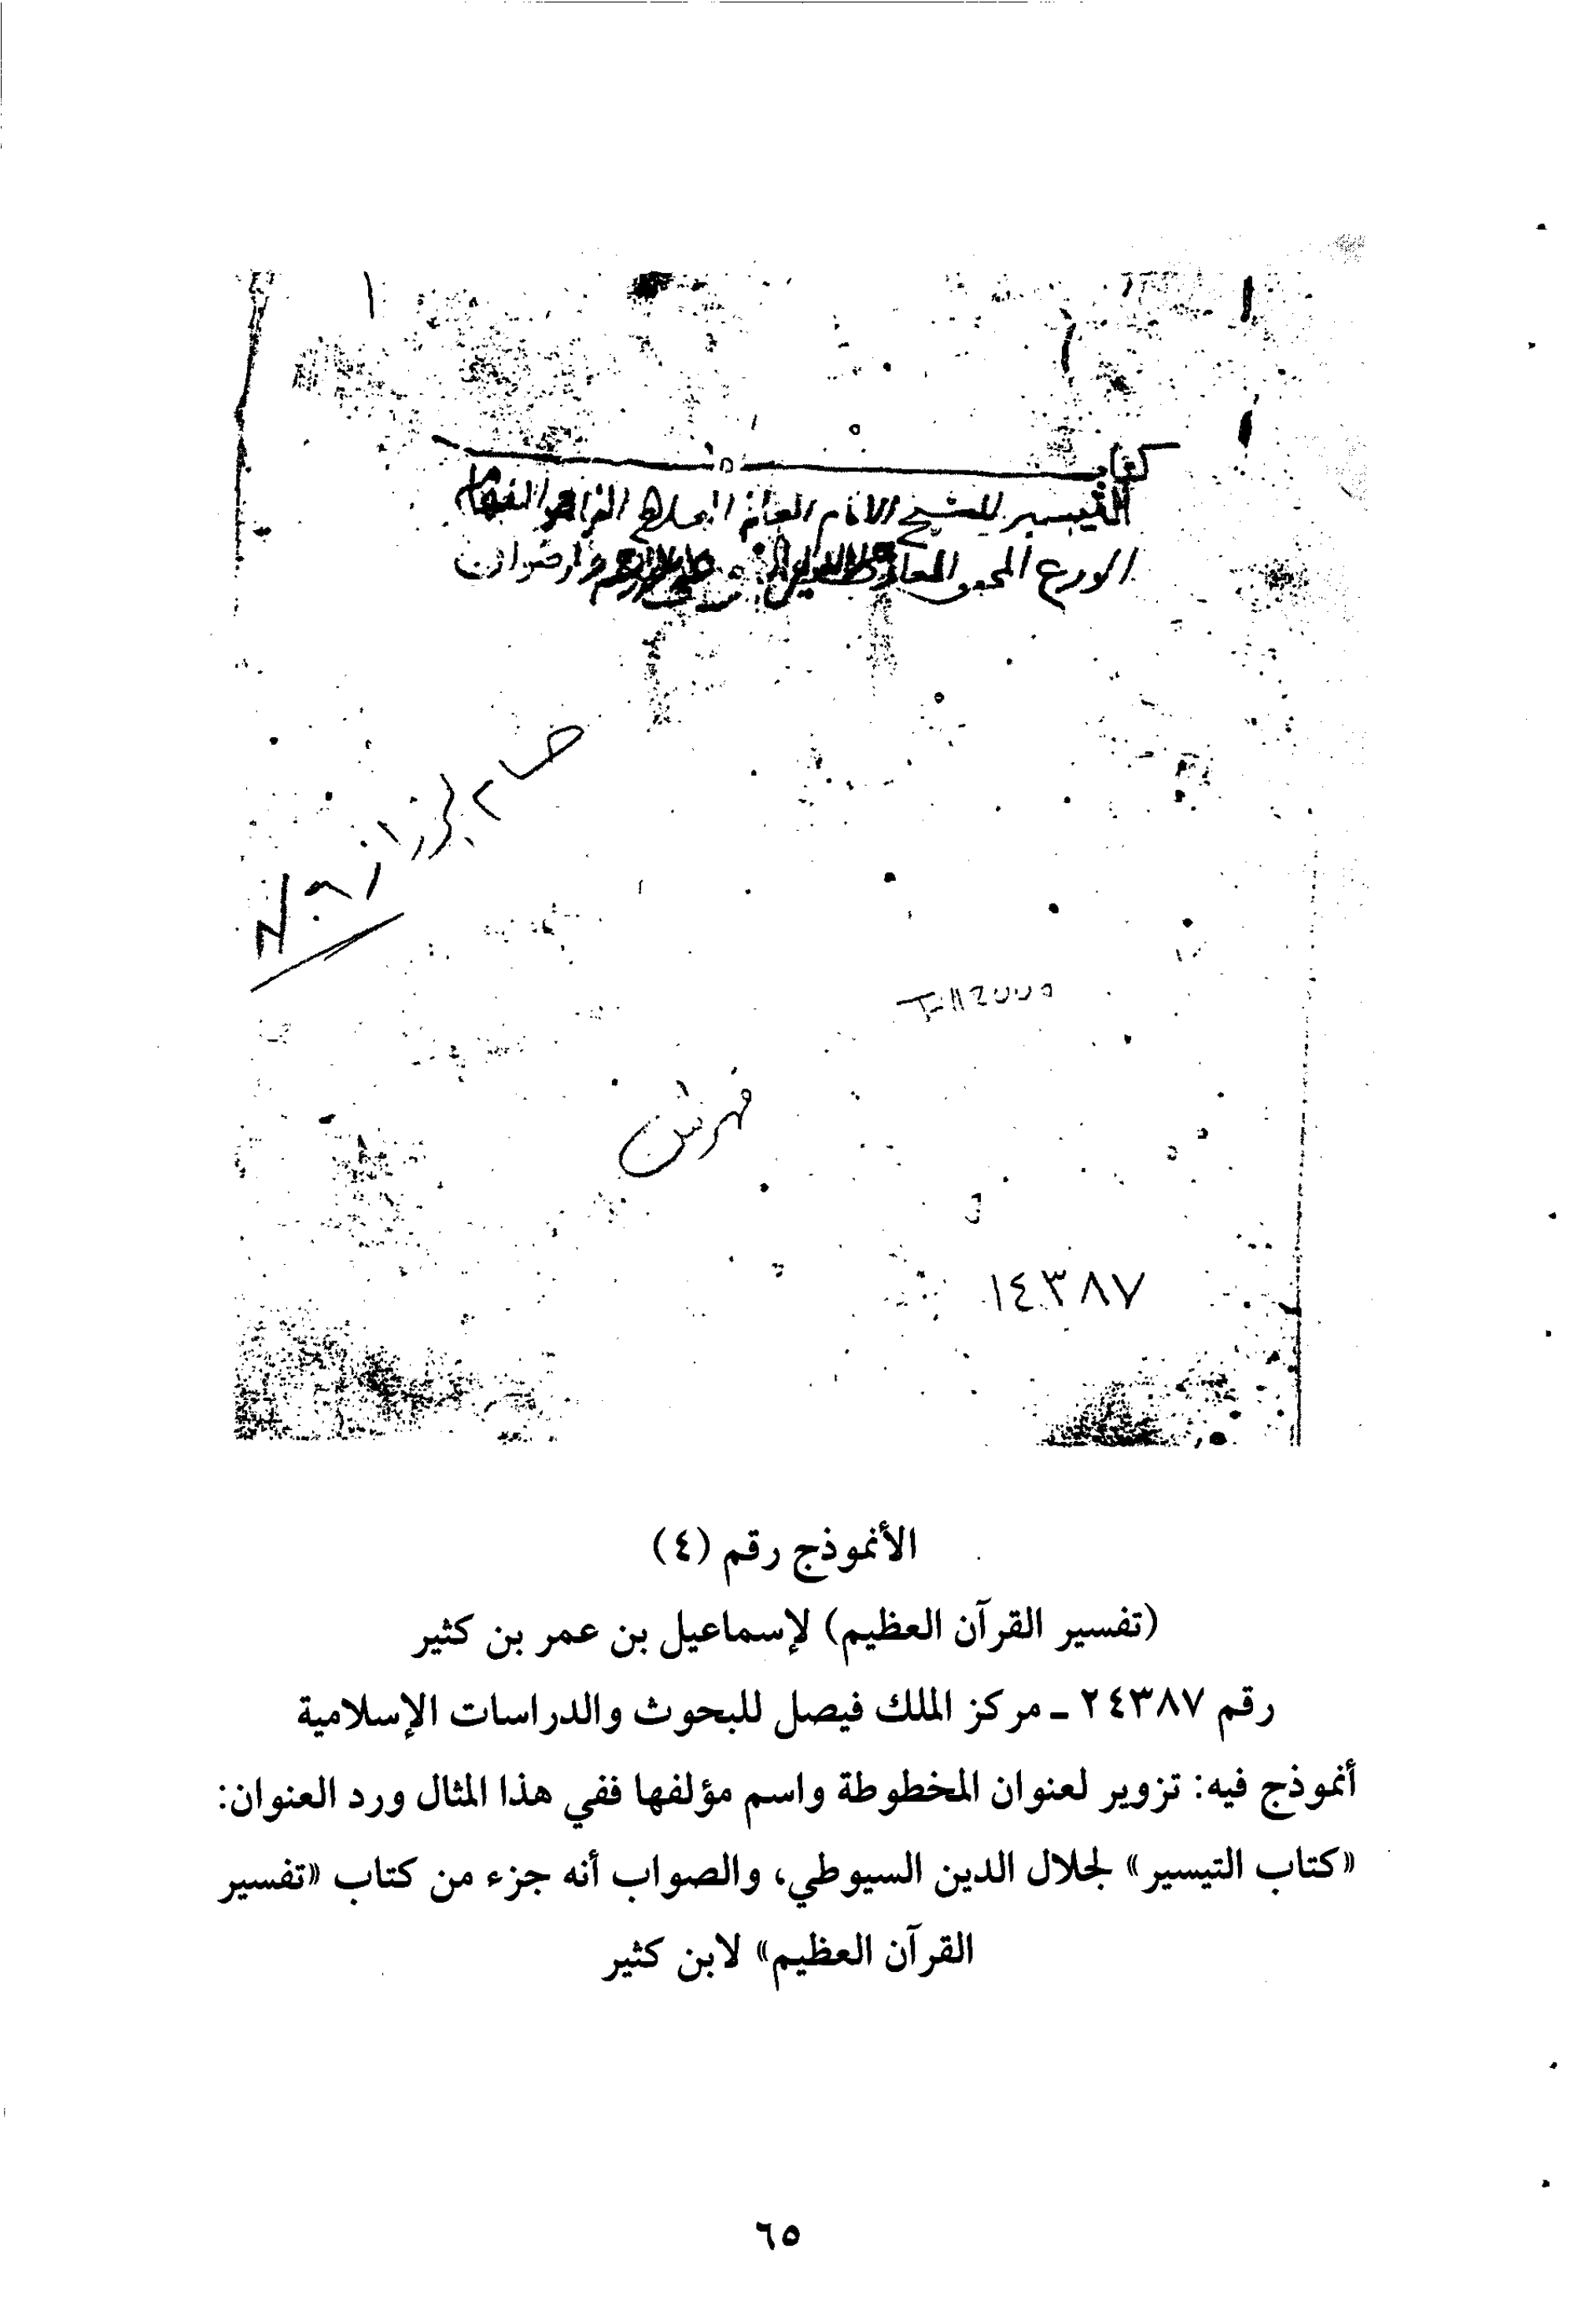 كتاب
التيسير للشيخ الامام العالم العلامة
الورع المحقق
فهرس
١٤٣٨٧
الأنموذج رقم (٤)
(تفسير القرآن العظيم) لإسماعيل بن عمر بن كثير
رقم ٢٤٣٨٧ ـ مركز الملك فيصل للبحوث والدراسات الإسلامية
أنموذج فيه: تزوير لعنوان المخطوطة واسم مؤلفها ففي هذا المثال ورد العنوان:
«كتاب التيسير» لجلال الدين السيوطي، والصواب أنه جزء من كتاب «تفسير
القرآن العظيم» لابن كثير
٦٥